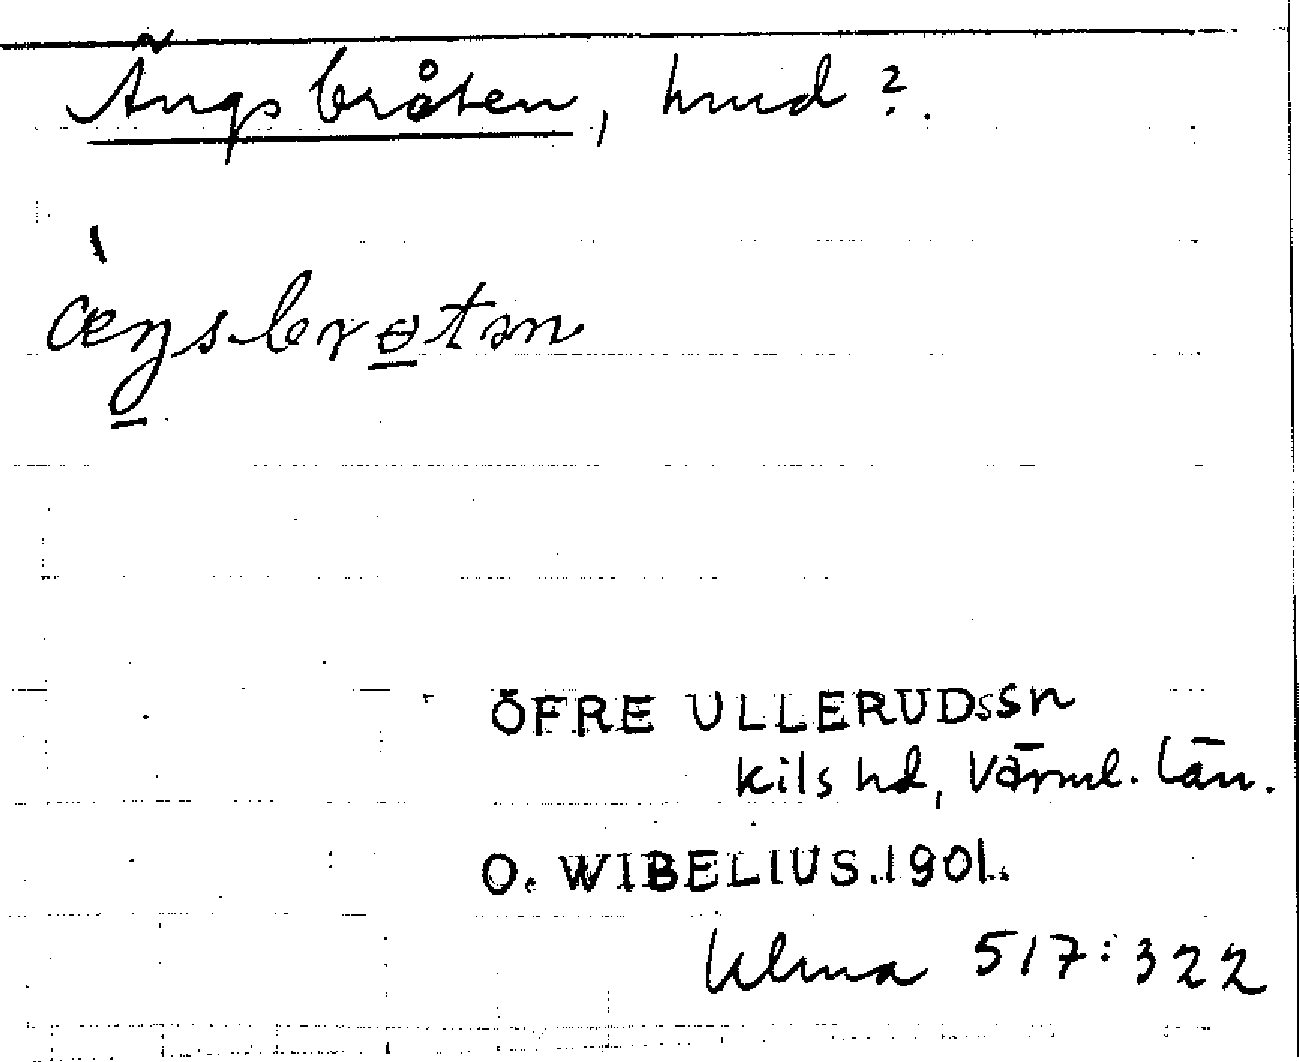 Ängsbråten, hmd?.
æŋsbrɵtən
ÖFRE ULLERUDSSN
Kils hd, Värml. län.
O. WIBELIUS.1901.
Ulma 517:322